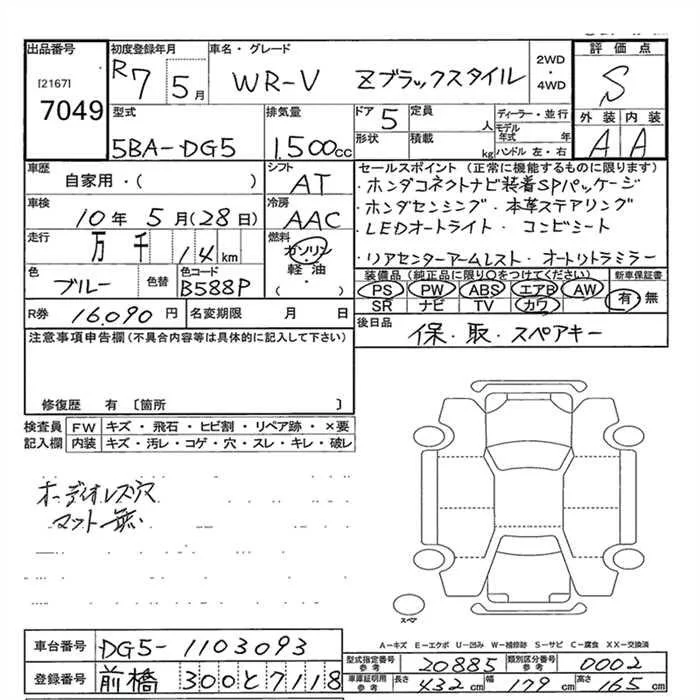 出品番号
[2167]
7049
初度登録年月
R7 5月
車名・グレード
WR-V Zブラックスタイル
2WD
・
4WD
評価点
S
外装 内装
A A
型式
5BA-DG5
排気量
1,500cc
ドア 5
定員 人
形状
積載 kg
ディーラー・並行
モデル年式 年
ハンドル 左・右
車歴
自家用・( )
シフト
AT
車検
10年 5月(28日)
冷房
AAC
走行
万 千 14 km
燃料
ガソリン
軽油
( ・ )
色
ブルー
色替
色コード
B588P
R券 16,090円
名変期限 月 日
セールスポイント(正常に機能するものに限ります)
・ホンダコネクトナビ装着SPパッケージ
・ホンダセンシング・本革ステアリング
・LEDオートライト・コンビシート
・リアセンターアームレスト・オートリトラミラー
装備品(純正品に限り○をつけてください)
PS PW ABS エアB AW
SR ナビ TV カワ
新車保証書
有・無
後日品
保・取・スペアキー
注意事項申告欄(不具合内容等は具体的に記入して下さい)
修復歴 有〔箇所 〕
検査員記入欄
FW キズ・飛石・ヒビ割・リペア跡・×要
内装 キズ・汚レ・コゲ・穴・スレ・キレ・破レ
オーディオレス穴
マット無
スペア
A-キズ E-エクボ U-凹み W-補修跡 S-サビ C-腐食 XX-交換済
車台番号 DG5-1103093
登録番号 前橋 300 と 7118
型式指定番号 参考 20885
類別区分番号 参考 0002
車庫証明用 参考 長さ 432cm 幅 179cm 高さ 165cm